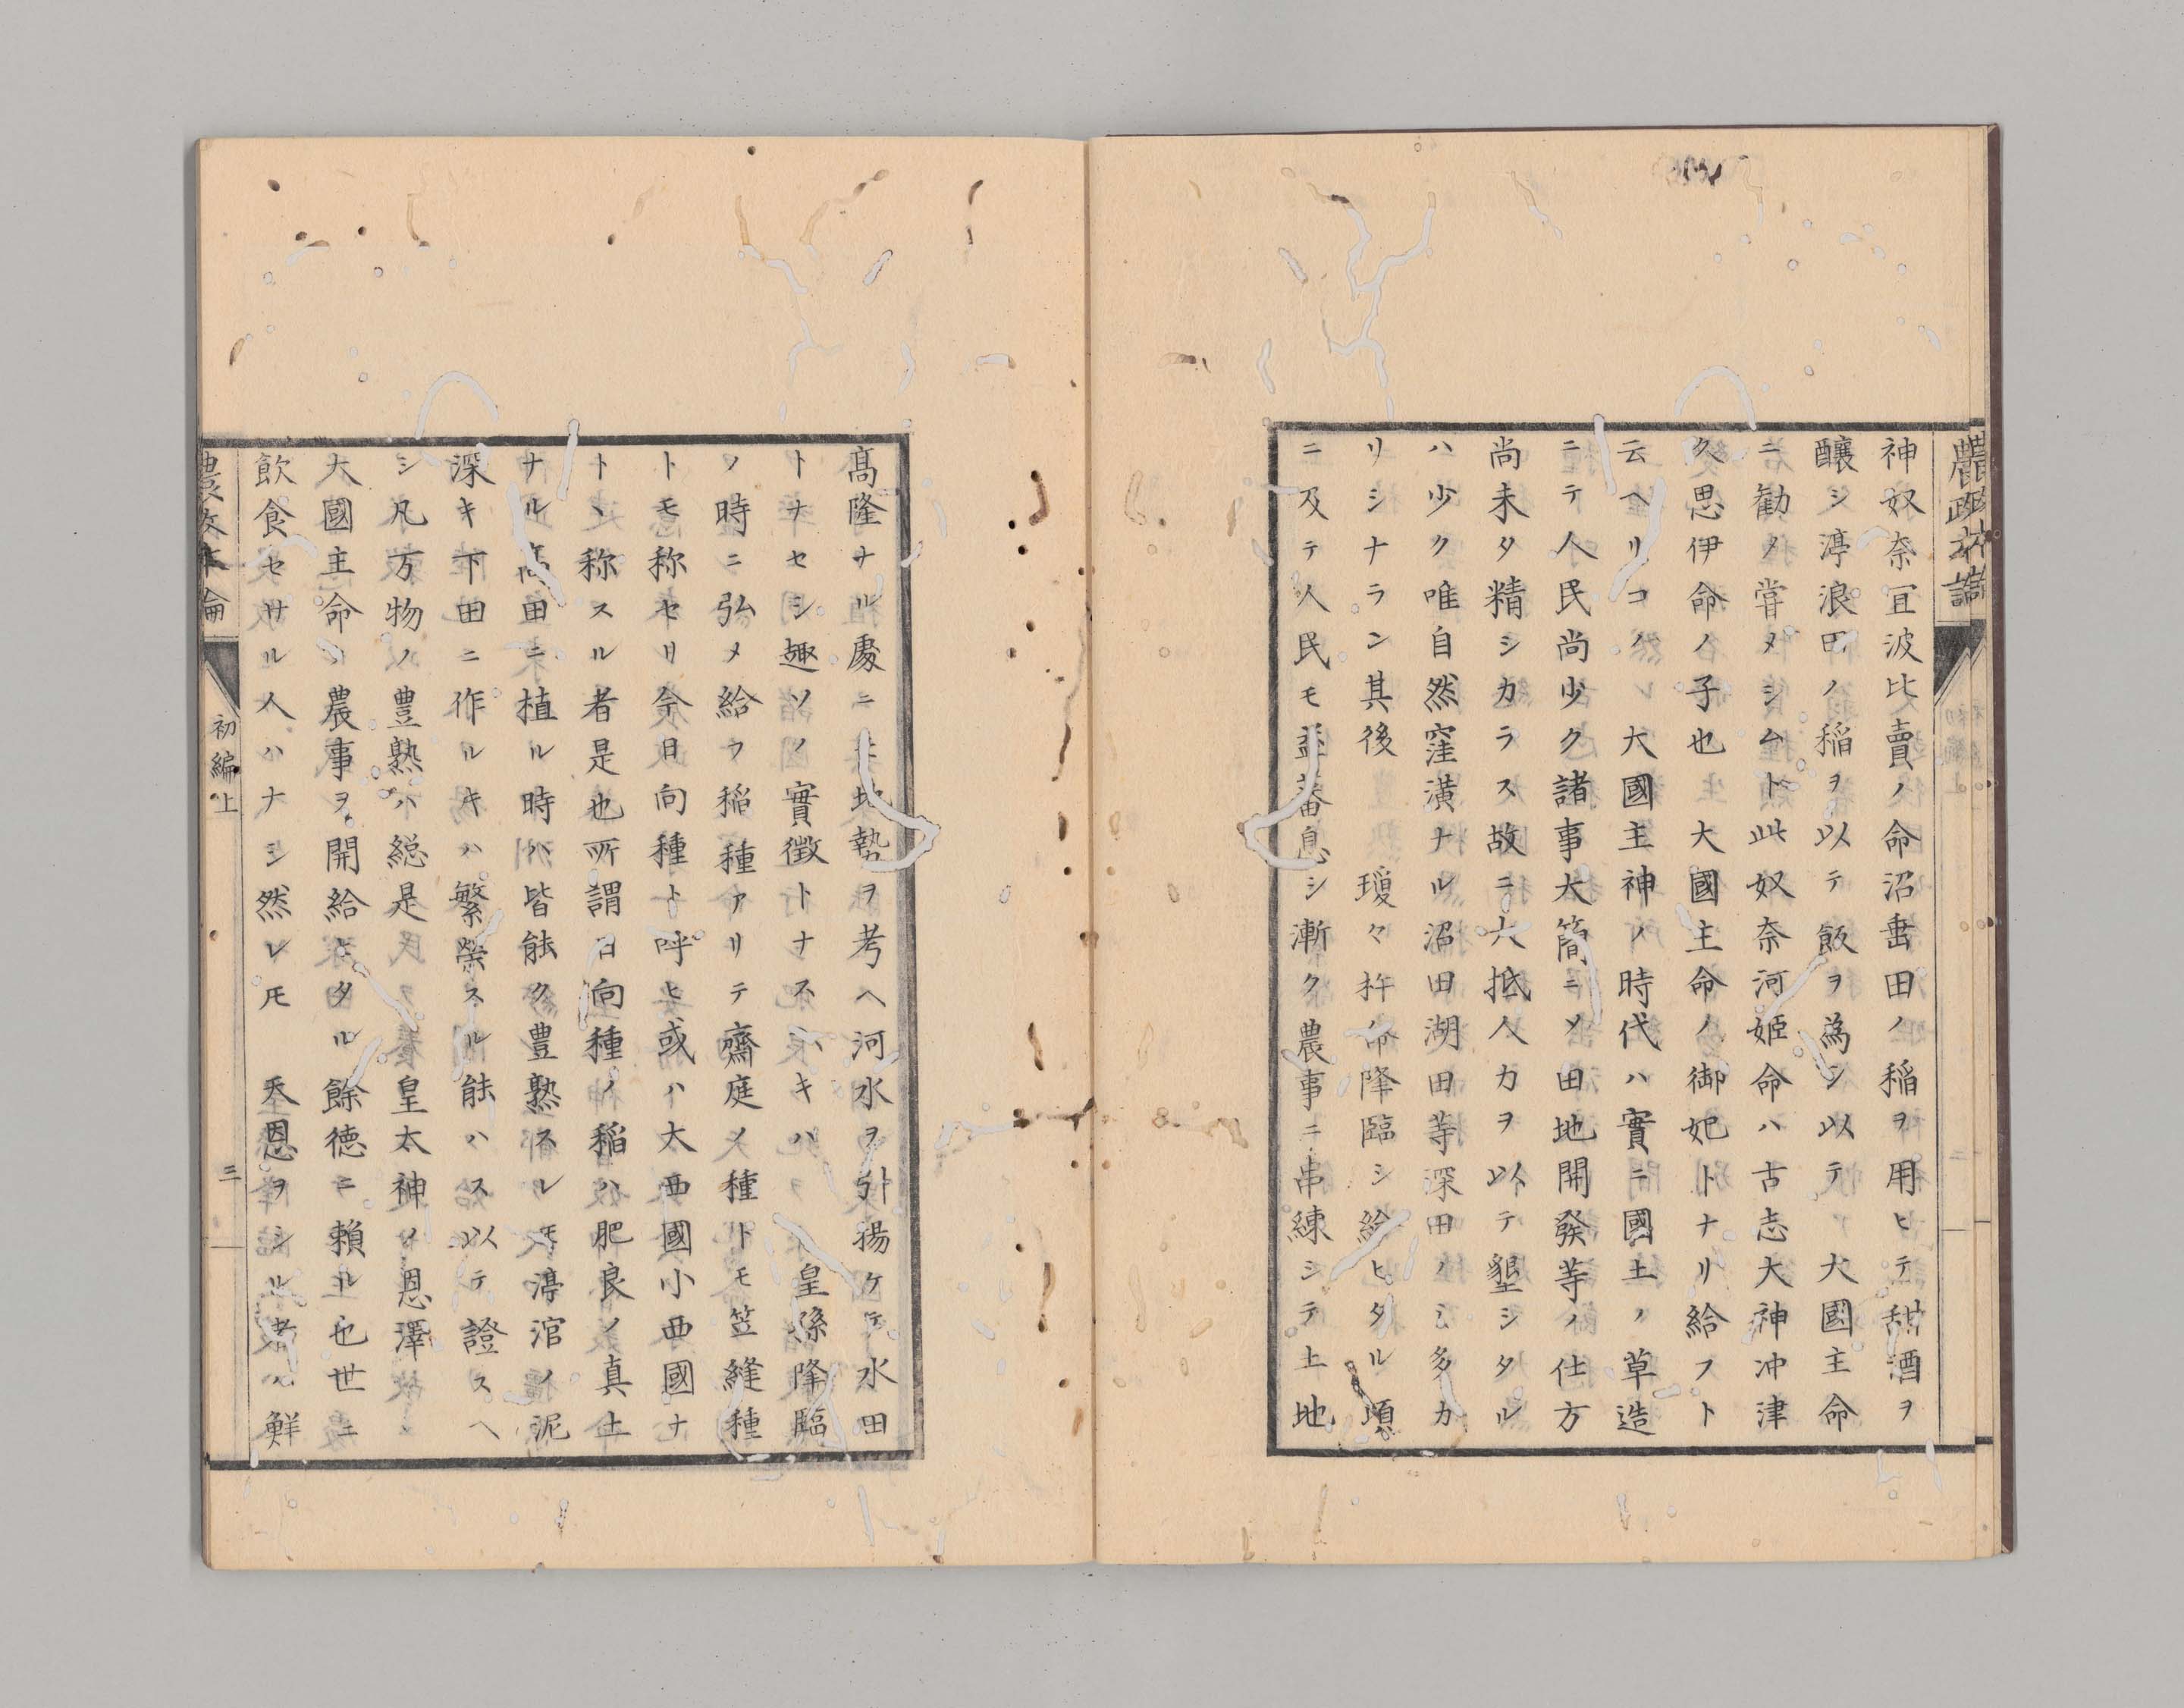 神奴奈冝波比賣ノ命沼垂田ノ稲ヲ用ヒテ甜酒ヲ
釀シ渟浪田ノ稲ヲ以テ飯ヲ為シ以テ大國主命
ニ勸メ甞メシム此奴奈河姫命ハ古志大神冲津
久思伊命ノ子也大國主命ノ御妃トナリ給フト
云ヘリ大國主神ノ時代ハ實ニ國土ノ草造
ニテ人民尚少ク諸事大簡ニメ田地開發等ノ仕方
尚未タ精シカラス故ニ大抵人力ヲ以テ墾シタル
ハ少ク唯自然窪潢ナル沼田湖田等深田ノミ多カ
リシナラン其後 瓊々杵命降臨シ給ヒタル頃
ニ及テ人民モ益蕃息シ漸ク農事ニ串練シテ土地
髙隆ナル處ニ地勢ヲ考ヘ河水ヲ引揚ケテ水田
トナセシ趣ソノ實徴トナスヘキハ 皇孫降臨
ノ時ニ弘メ給フ稲種アリテ齋庭ノ種トモ笠縫種
トモ称セリ今日向種ト呼ヒ或ハ大西國小西國ナ
トヽ称スル者是也所謂日向種ノ稲ハ肥良ノ真土
ナル髙田ニ植ル時ハ皆能ク豊熟スレ𪜈渟涫ノ泥
深キ下田ニ作ルキハ繁榮スル能ハス以テ證スヘ
シ凡万物ノ豊熟ハ総是 皇太神ノ恩澤
大國主命ノ農事ヲ開給ヒタル餘徳ニ頼ル也世ニ
飲食セサル人ハナシ然レ𪜈 天恩ヲシル者ハ鮮
農政本論
初編上
三